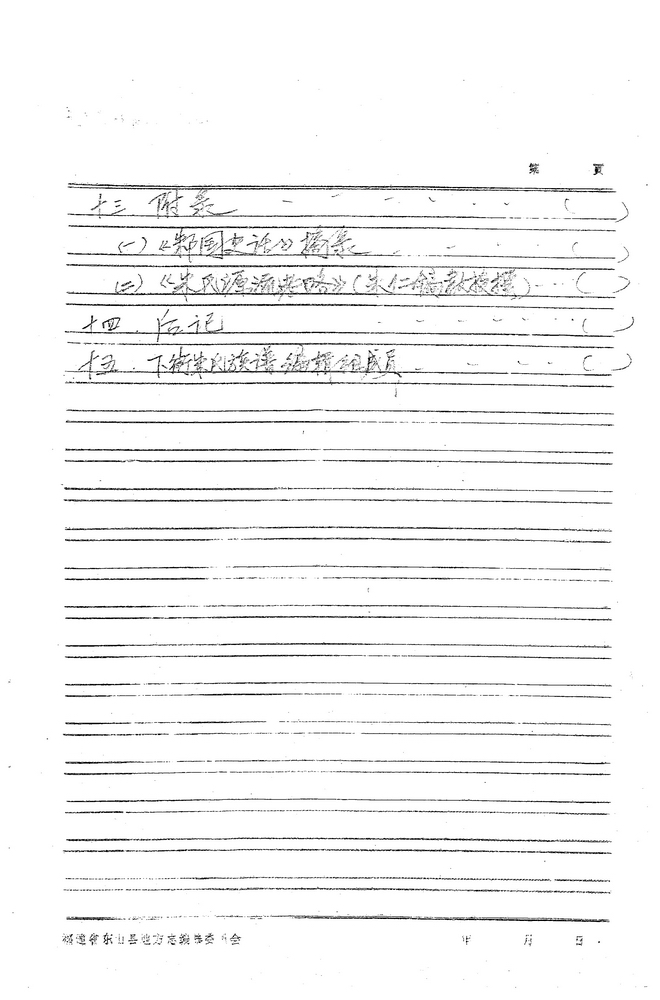 第 页
十三. 附录 - - - - - - - ( )
(一)《邾国史话》摘录 - - - - - ( )
(二)《朱氏源流考略》(朱仁 教授撰) - - ( )
十四. 后记 - - - - - - - ( )
十五. 下街朱氏族谱编辑组成员 - - - - ( )
福建省东山县地方志编纂委员会 年 月 日